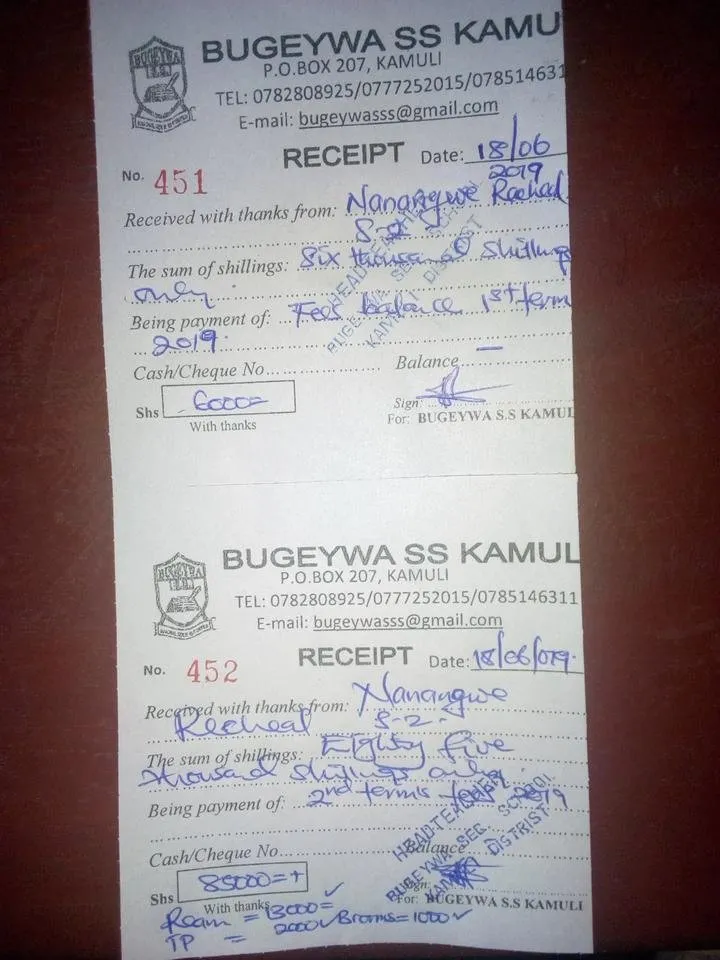 BUGEYWA SS KAMU
P.O.BOX 207, KAMULI
TEL: 0782808925/0777252015/078514631
E-mail: bugeywasss@gmail.com
RECEIPT Date: 18/06
2019
No. 451
Received with thanks from: Nanangwe Racheal
S-2
The sum of shillings: Six thousand shillings
only
Being payment of: Fees balance 1st term
2019.
Cash/Cheque No
Balance —
Shs 6000=
With thanks
Sign:
For: BUGEYWA S.S KAMUL
HEADTEACHER
BUGEYWA SEC. SCHOOL
KAMULI DISTRICT
BUGEYWA
BUGEYWA SS KAMUL
P.O.BOX 207, KAMULI
TEL: 0782808925/0777252015/0785146311
E-mail: bugeywasss@gmail.com
RECEIPT Date: 18/06/019.
No. 452
Received with thanks from: Nanangwe
Recheal S-2.
The sum of shillings: Eighty five
thousand shillings only
Being payment of: 2nd terms fees 2019
Cash/Cheque No
Balance
Shs 85000=+
With thanks
Sign:
For: BUGEYWA S.S KAMULI
HEADTEACHER
BUGEYWA SEC. SCHOOL
KAMULI DISTRIST
Ream = 13000= ✓
TP = 2000 ✓ Brooms = 1000 ✓
BUGEYWA